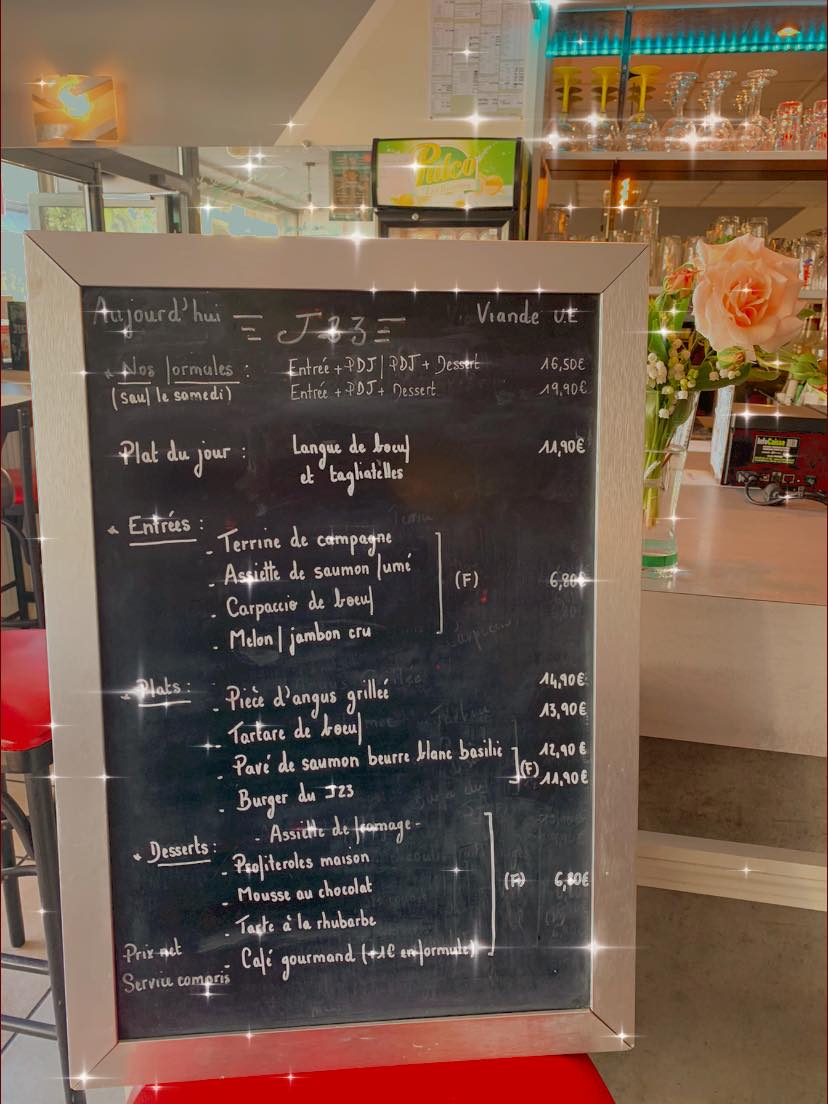 Pulco
Aujourd'hui J23 Viande U.E
Nos formules : Entrée + PDJ / PDJ + Dessert 16,50€
(sauf le samedi) Entrée + PDJ + Dessert 19,90€
Plat du jour : Langue de boeuf 11,90€
et tagliatelles
Entrées :
- Terrine de campagne
- Assiette de saumon fumé (F) 6,80€
- Carpaccio de boeuf
- Melon / jambon cru
Plats : - Pièce d'angus grillée 14,90€
- Tartare de boeuf 13,90€
- Pavé de saumon beurre blanc basilic 12,90€
- Burger du J23 (F) 11,90€
- Assiette de fromage -
Desserts :
- Profiteroles maison
- Mousse au chocolat (F) 6,80€
- Tarte à la rhubarbe
- Café gourmand (+1€ en formule)
Prix net
Service compris
InfoCaisse